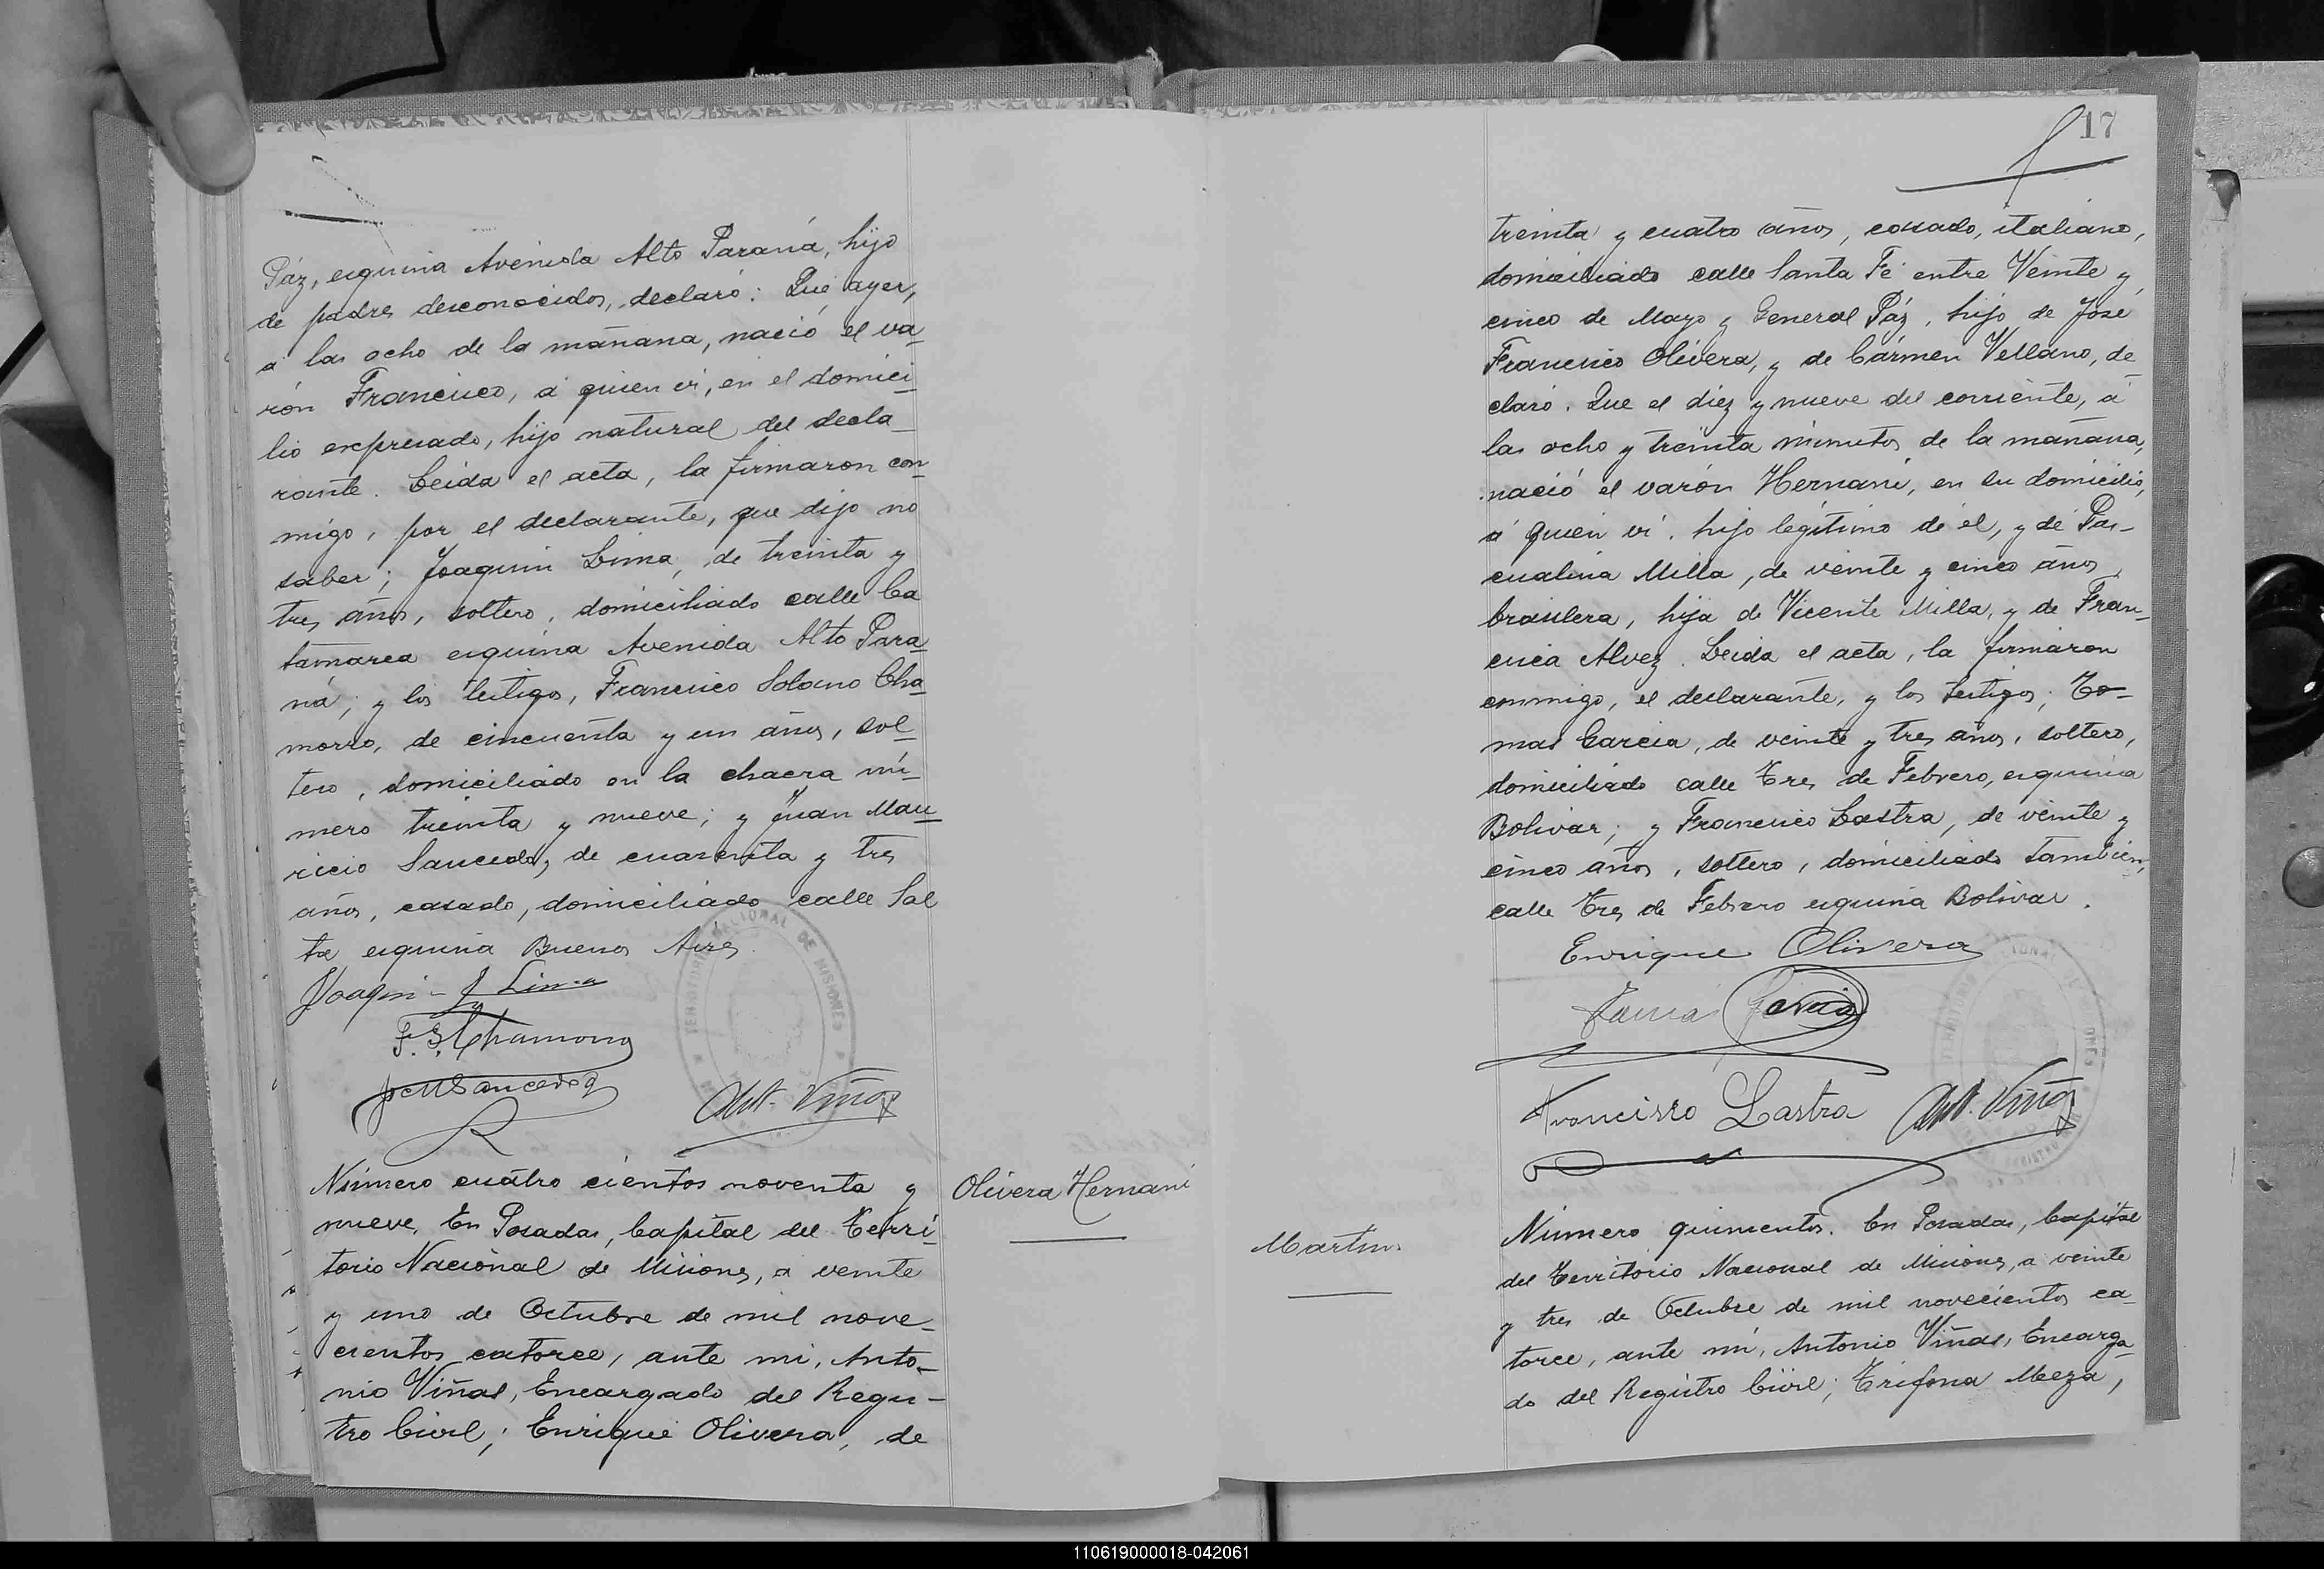 Páz, esquina Avenida Alto Paraná, hijo
de padres desconocidos, declaró: Que ayer,
a las ocho de la mañana, nació el va_
rón Francisco, a quien ví, en el domici_
lio expresado, hijo natural del decla_
rante. Leida el acta, la firmaron con_
migo, por el declarante, que dijo no
saber; Joaquin Lima, de treinta y
tres años, soltero, domiciliado calle Ca
tamarca esquina Avenida Alto Para_
ná; y los testigos, Francisco Solano Cha_
morro, de cincuenta y un años, sol_
tero, domiciliado en la chacra nú_
mero treinta y nueve; y Juan Mau_
ricio Saucedo, de cuarenta y tres
años, casado, domiciliado calle Sal
ta esquina Buenos Aires.
Joaquin J Lima
F. S. Chamorro
J M Saucedo
Ant. Viñas
Número cuatro cientos noventa y
nueve. En Posadas, Capital del Terri_
torio Nacional de Misiones, a veinte
y uno de Octubre de mil nove_
cientos catorce, ante mi, Anto_
nio Viñas, Encargado del Regis_
tro Civil; Enrique Olivera, de
Olivera Hernani
17
treinta y cuatro años, casado, italiano,
domiciliado calle Santa Fé entre Veinte y
cinco de Mayo y General Páz, hijo de José
Francisco Olivera, y de Cármen Vellano, de_
claró. Que el diez y nueve del corriente, á
las ocho y treinta minutos de la mañana,
nació el varón Hernani, en su domicilio,
á quien ví, hijo legitimo de él, y de Pas_
cualina Milla, de veinte y cinco años,
brasilera, hija de Vicente Milla, y de Fran_
cisca Alvez. Leida el acta, la firmaron
conmigo, el declarante, y los testigos; To_
mas Garcia, de veinte y tres años, soltero,
domiciliado calle Tres de Febrero, esquina
Bolivar; y Francisco Lastra, de veinte y
cinco años, soltero, domiciliado tambien,
calle Tres de Febrero esquina Bolivar.
Enrique Olivera
Garcia
Francisco Lastra
Ant. Viñas
Martin
Número quinientos. En Posadas, Capital
del Territorio Nacional de Misiones, a veinte
y tres de Octubre de mil novecientos ca_
torce, ante mi, Antonio Viñas, Encarga_
do del Registro Civil; Trifona Meza,
110619000018-042061